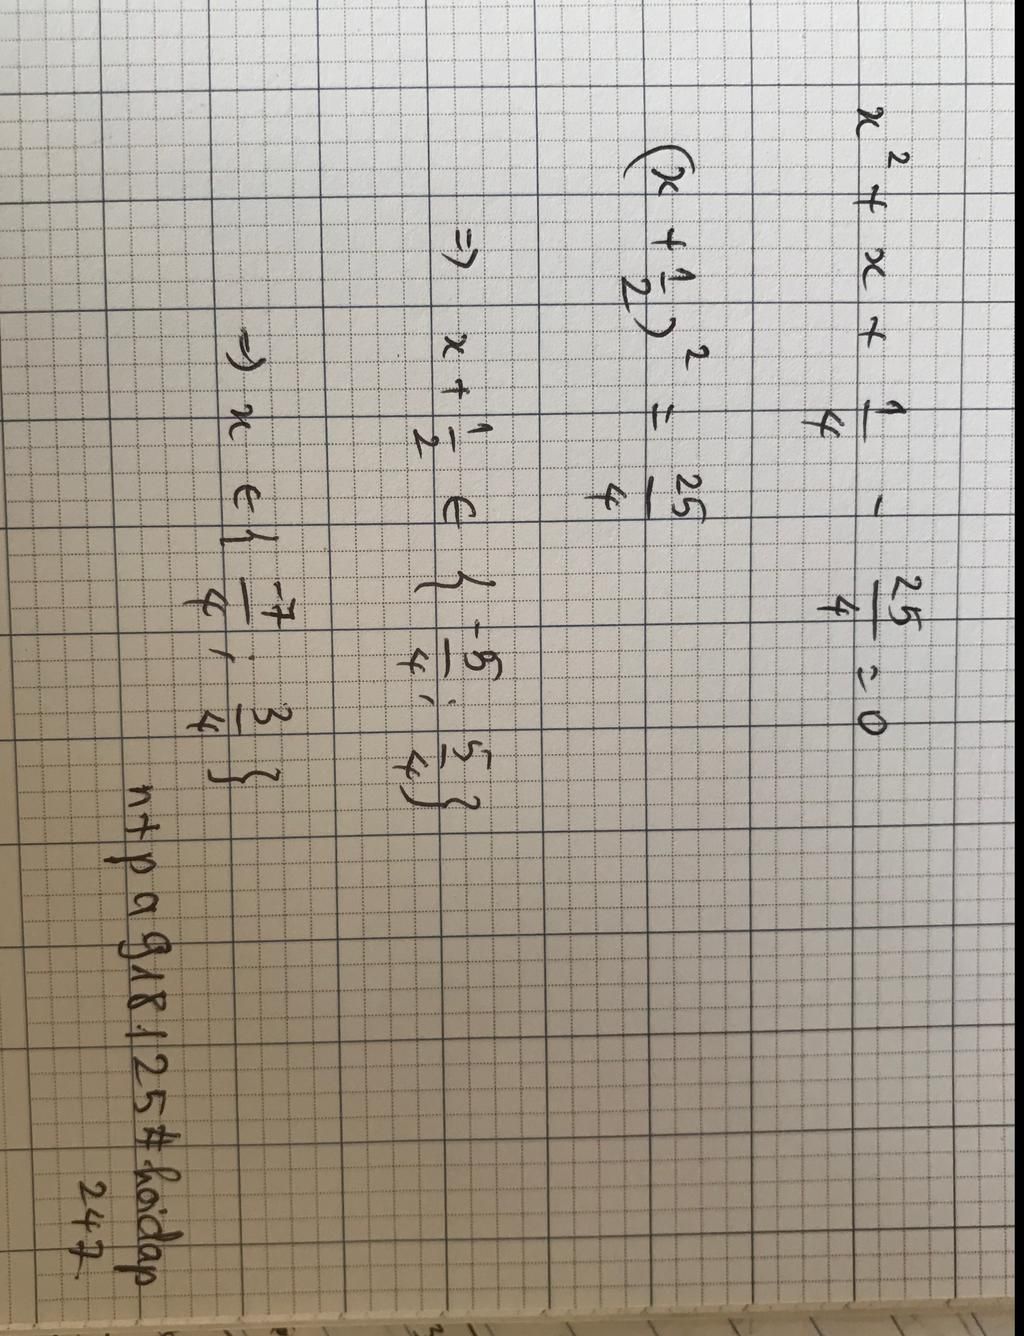 x² + x + 1/4 - 25/4 = 0
(x + 1/2)² = 25/4
=> x + 1/2 ∈ { -5/4 ; 5/4 }
=> x ∈ { -7/4 ; 3/4 }
ntpag18125#hoidap
247